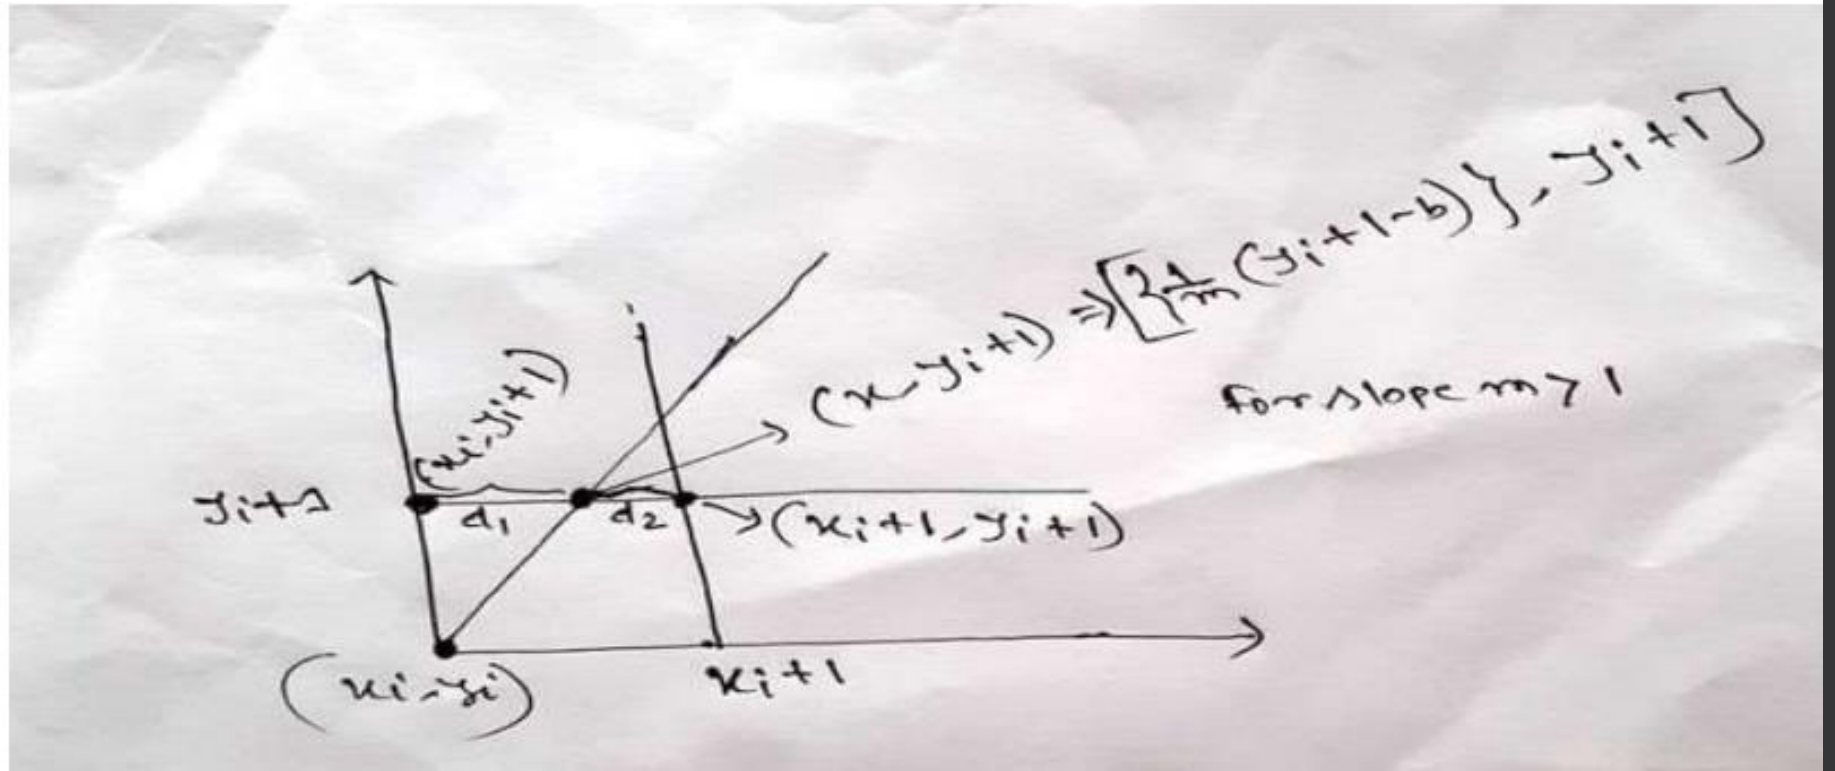 (x, yi+1) ⇒ [{1/m (yi+1-b)}, yi+1]
for slope m > 1
(xi, yi+1)
yi+1
d1
d2
(xi+1, yi+1)
(xi, yi)
xi+1